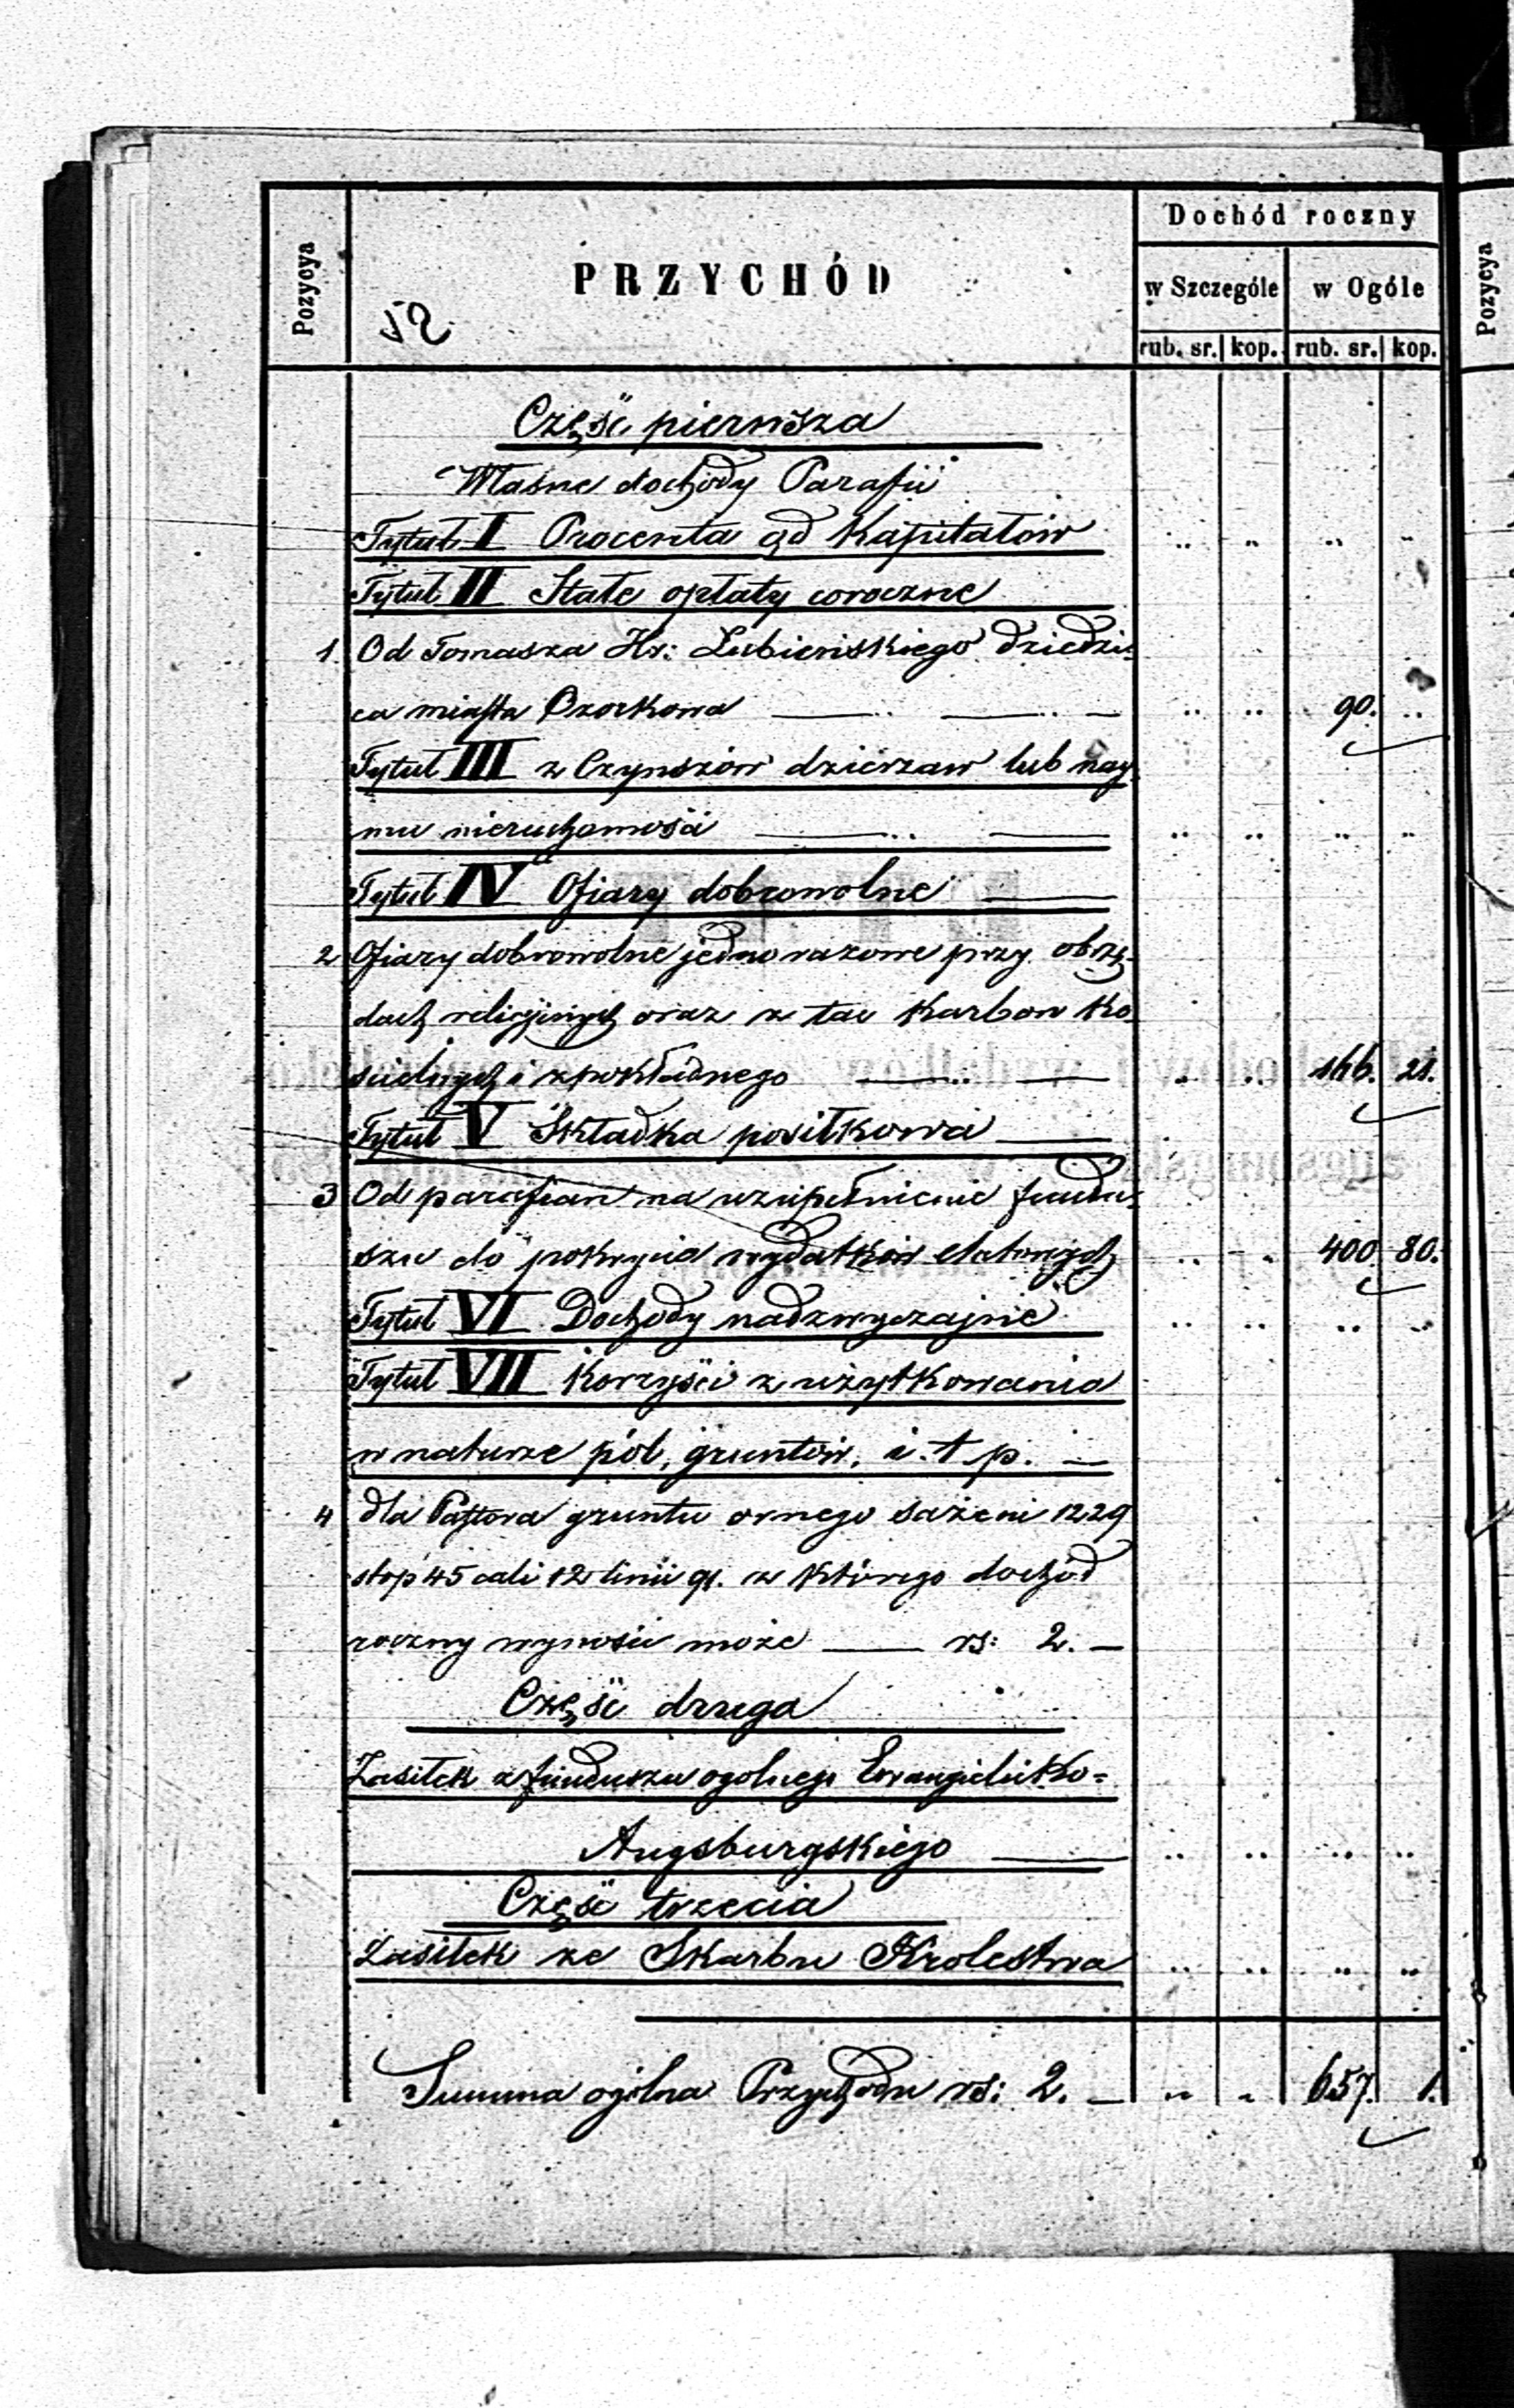 Pozycya
PRZYCHÓD
Dochód roczny
w Szczególe
w Ogóle
rub. sr. kop. rub. sr. kop.
Część pierwsza
Własne dochody Parafii
Tytuł I Procenta od Kapitałów " " " "
Tytuł II Stałe opłaty coroczne
1. Od Tomasza Hr: Łubieńskiego dziedzi-
ca miasta Ozorkowa " " 90. "
Tytuł III z Czynszów dzierzaw lub nay-
mu nieruchomości " " " "
Tytuł IV Ofiary dobrowolne
2 Ofiary dobrowolne jednorazowe przy obrzę-
dach religijnych oraz z tac Karbon Ko-
ścielnych i zpokładnego " " 166. 21.
Tytuł V Składka posiłkowa
3 Od parafian na uzupełnienie fundu-
szu do pokrycia wydatków etatowych " " 400 80.
Tytuł VI Dochody nadzwyczajne " " " "
Tytuł VII Korzyści z użytkowania
w naturze pól, gruntów, i. t. p.
4 dla Pastora gruntu ornego sążeni 1229
stop 45 cali 12 linii 91. z którego dochód
roczny wynosić może rs: 2. —
Część druga
Zasiłek z funduszu ogolnego Ewangielicko=
Augsburgskiego " " " "
Część trzecia
Zasiłek ze Skarbu Krolestwa " " " "
Summa ogólna Przychodu rs: 2. — " " 657. 1.
Pozycya